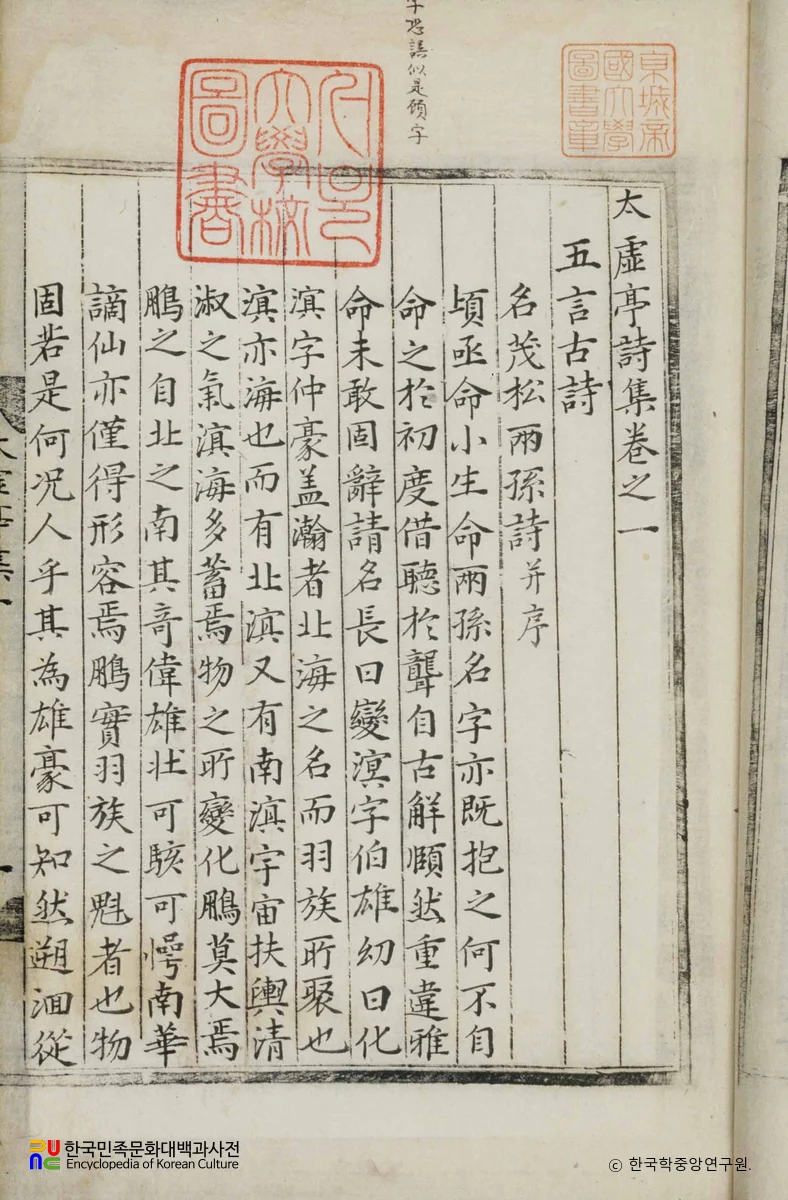 字恐誤似是頎字
東城帝
國大學
圖書章
太虛亭詩集卷之一
五言古詩
名茂松兩孫詩并序
頃亟命小生命兩孫名字亦既抱之何不自
命之於初度借聽於聾自古解頤然重違雅
命未敢固辭請名長曰變溟字伯雄幼曰化
滇字仲豪盖瀚者北海之名而羽族所聚也
滇亦海也而有北滇又有南滇宇宙扶輿清
淑之氣滇海多蓄焉物之所變化鵬莫大焉
鵬之自北之南其竒偉雄壯可駭可愕南華
謫仙亦僅得形容焉鵬實羽族之魁者也物
固若是何况人乎其為雄豪可知然遡洄從
한국민족문화대백과사전
Encyclopedia of Korean Culture
© 한국학중앙연구원.